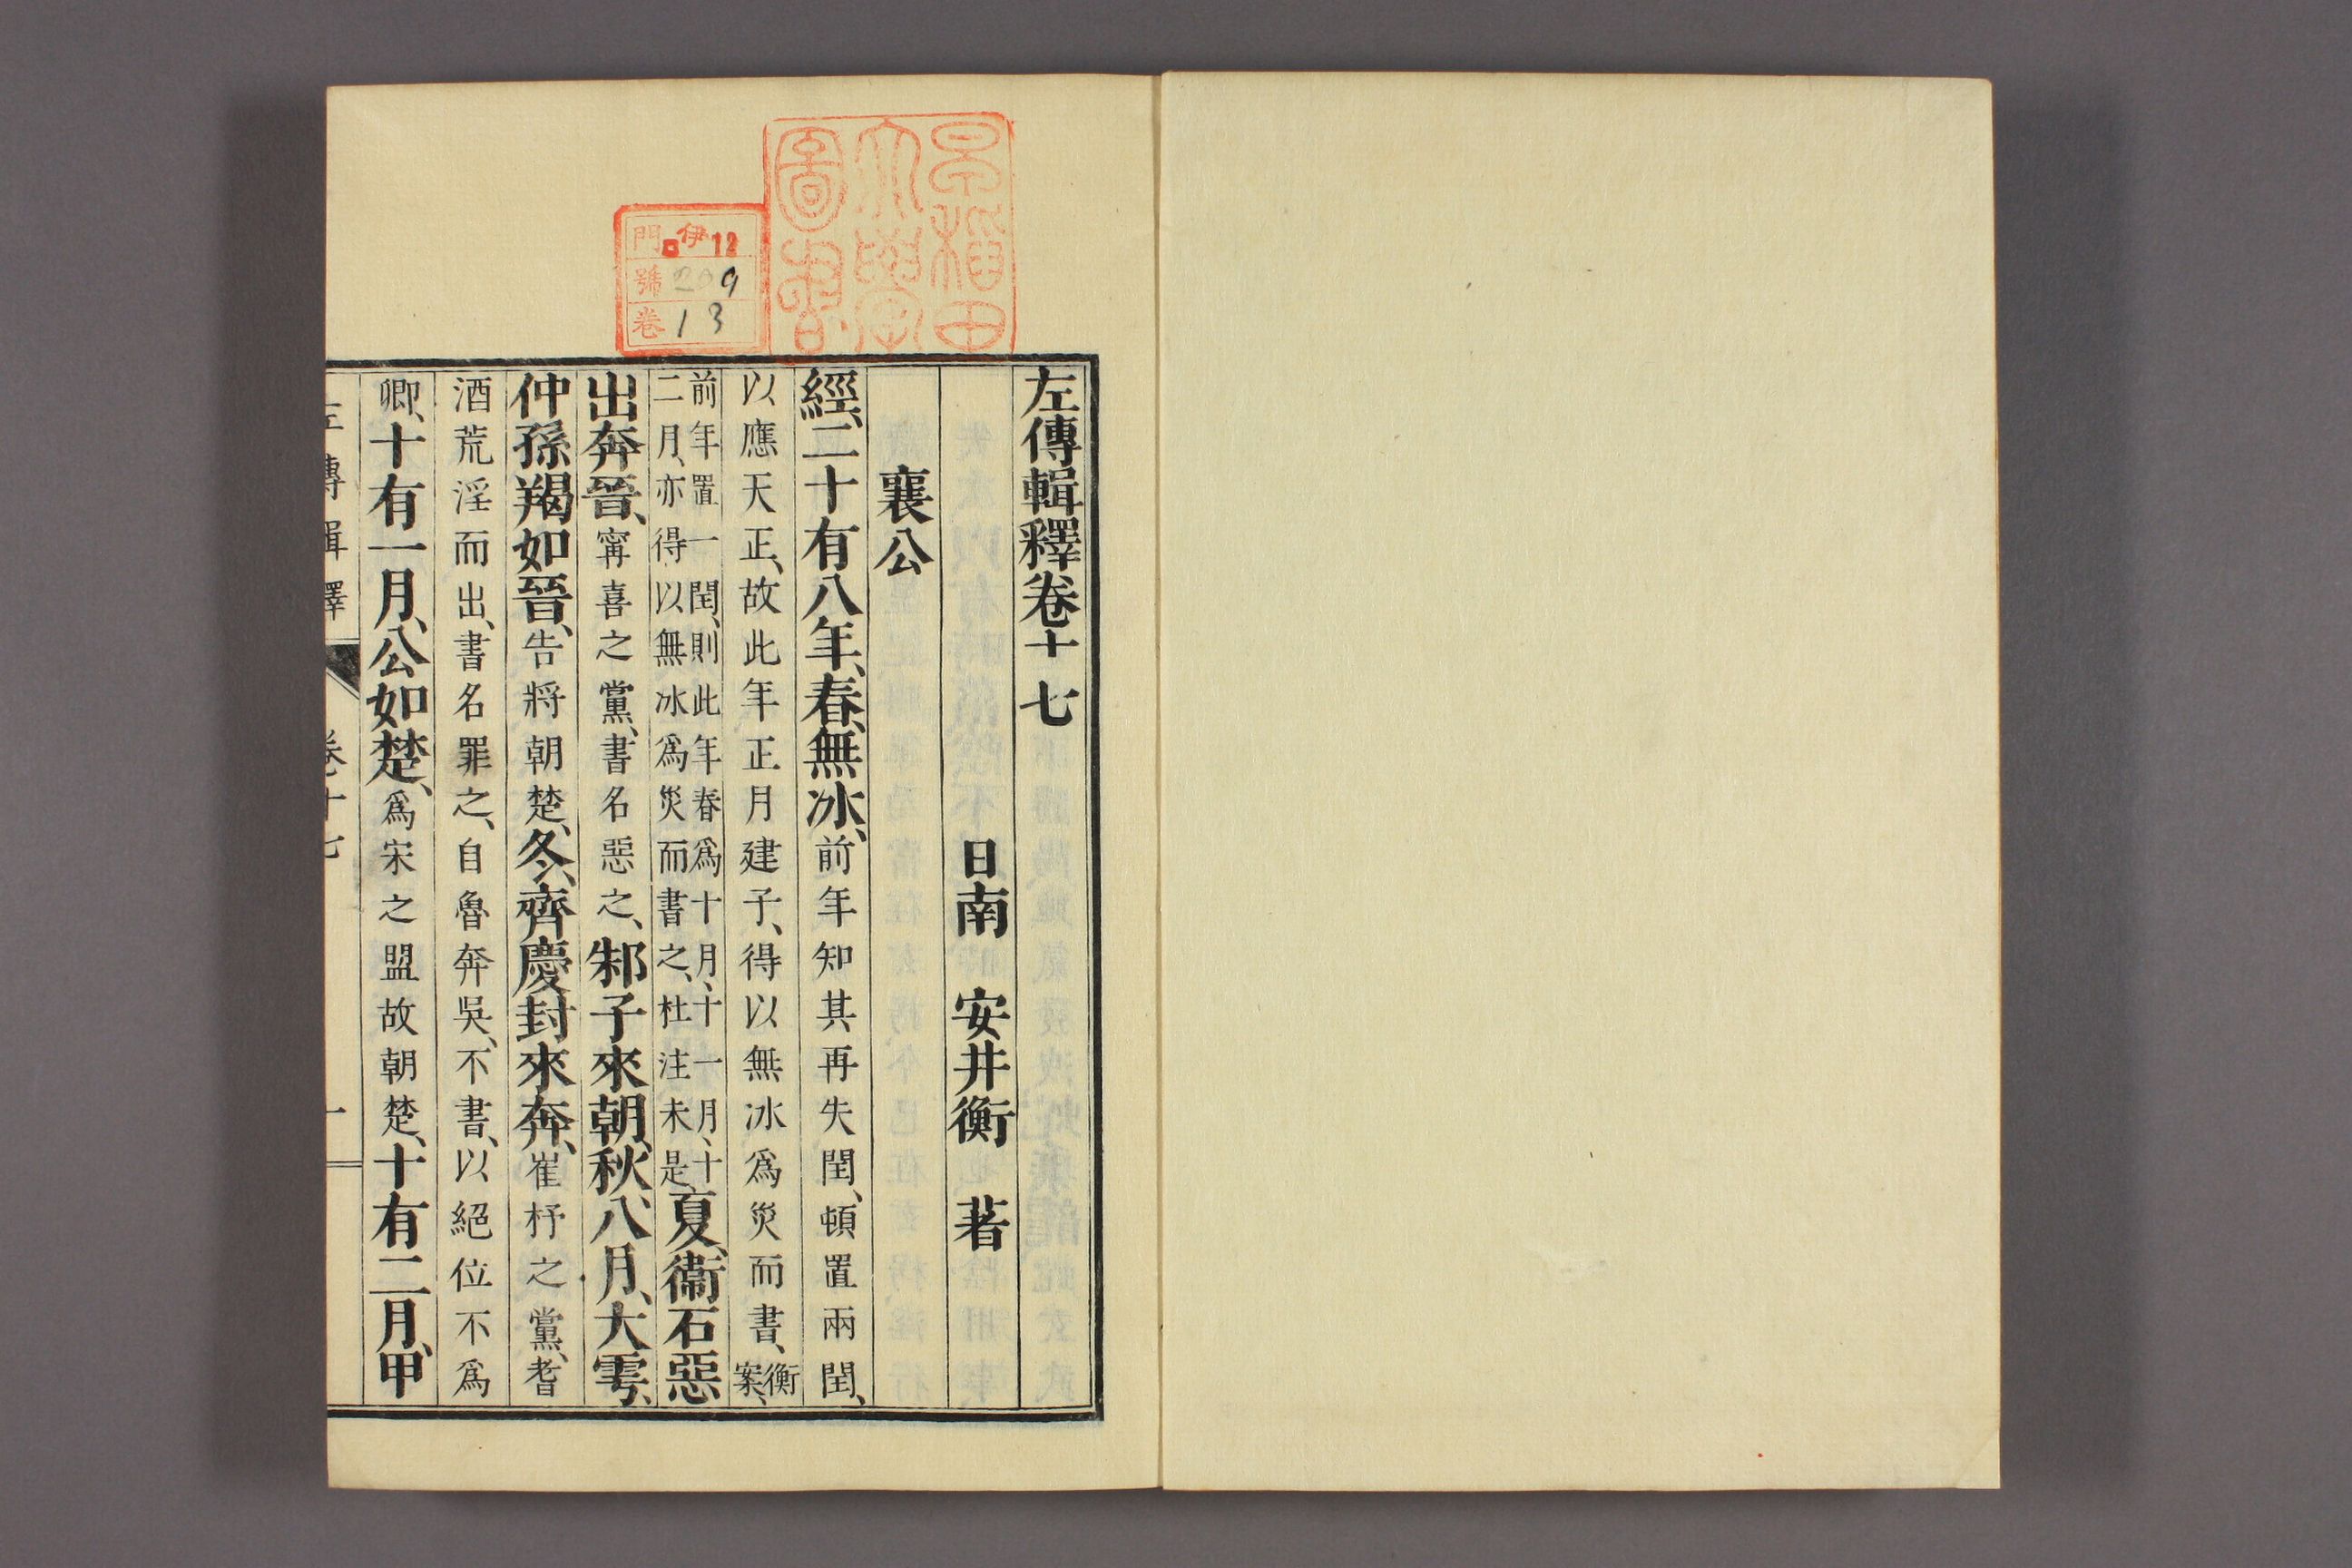 早稲田
大學
圖書
門 伊 12
號 209
卷 13
左傳輯釋卷十七
日南 安井衡 著
襄公
經、二十有八年、春、無冰、前年知其再失閏、頓置兩閏、
以應天正、故此年正月建子、得以無冰爲災而書、衡案、
前年置一閏、則此年春爲十月、十一月、十
二月、亦得以無冰爲災而書之、杜注未是、夏、衞石惡
出奔晉、甯喜之黨、書名惡之、邾子來朝、秋、八月、大雩、
仲孫羯如晉、告將朝楚、冬、齊慶封來奔、崔杼之黨、耆
酒荒淫而出、書名罪之、自魯奔吳、不書、以絕位不爲
卿、十有一月、公如楚、爲宋之盟故朝楚、十有二月、甲
左傳輯釋 卷十七 一